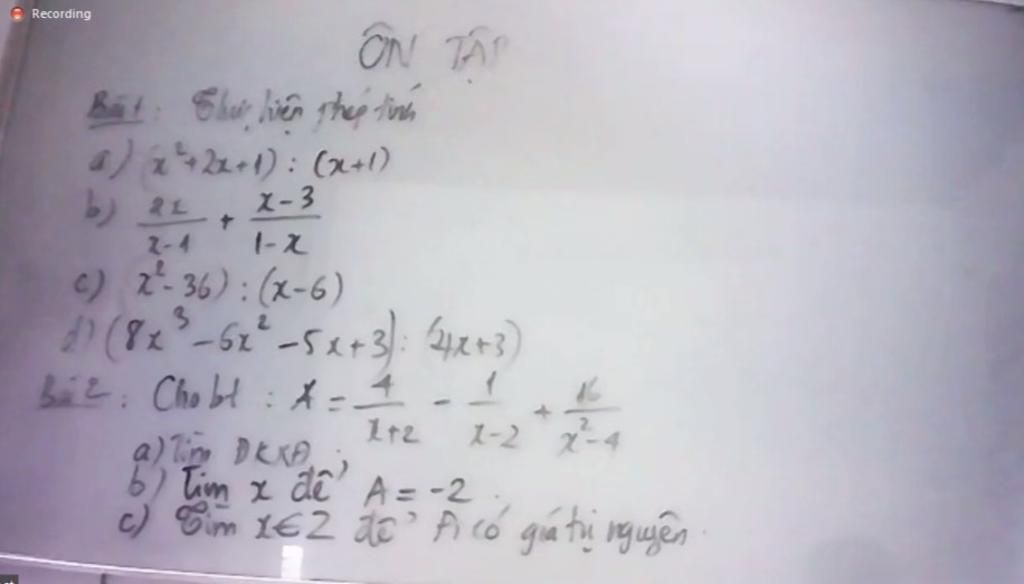 Recording
ÔN TẬP
Bài 1: Thực hiện phép tính
a) (x²+2x+1) : (x+1)
b) 2x/x-1 + x-3/1-x
c) x²-36) : (x-6)
d) (8x³-6x²-5x+3) : (4x+3)
Bài 2: Cho bt : A = 4/x+2 - 1/x-2 + 16/x²-4
a) Tìm ĐKXĐ
b) Tìm x để A = -2.
c) Tìm x∈Z để A có giá trị nguyên.